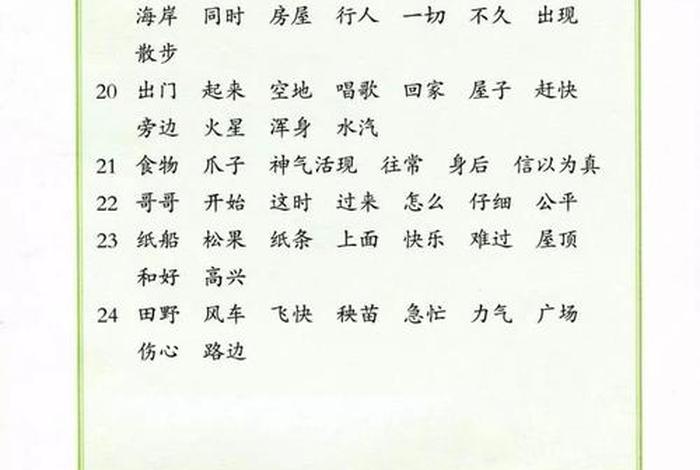 海岸 同时 房屋 行人 一切 不久 出现
散步
20 出门 起来 空地 唱歌 回家 屋子 赶快
旁边 火星 浑身 水汽
21 食物 爪子 神气活现 往常 身后 信以为真
22 哥哥 开始 这时 过来 怎么 仔细 公平
23 纸船 松果 纸条 上面 快乐 难过 屋顶
和好 高兴
24 田野 风车 飞快 秧苗 急忙 力气 广场
伤心 路边